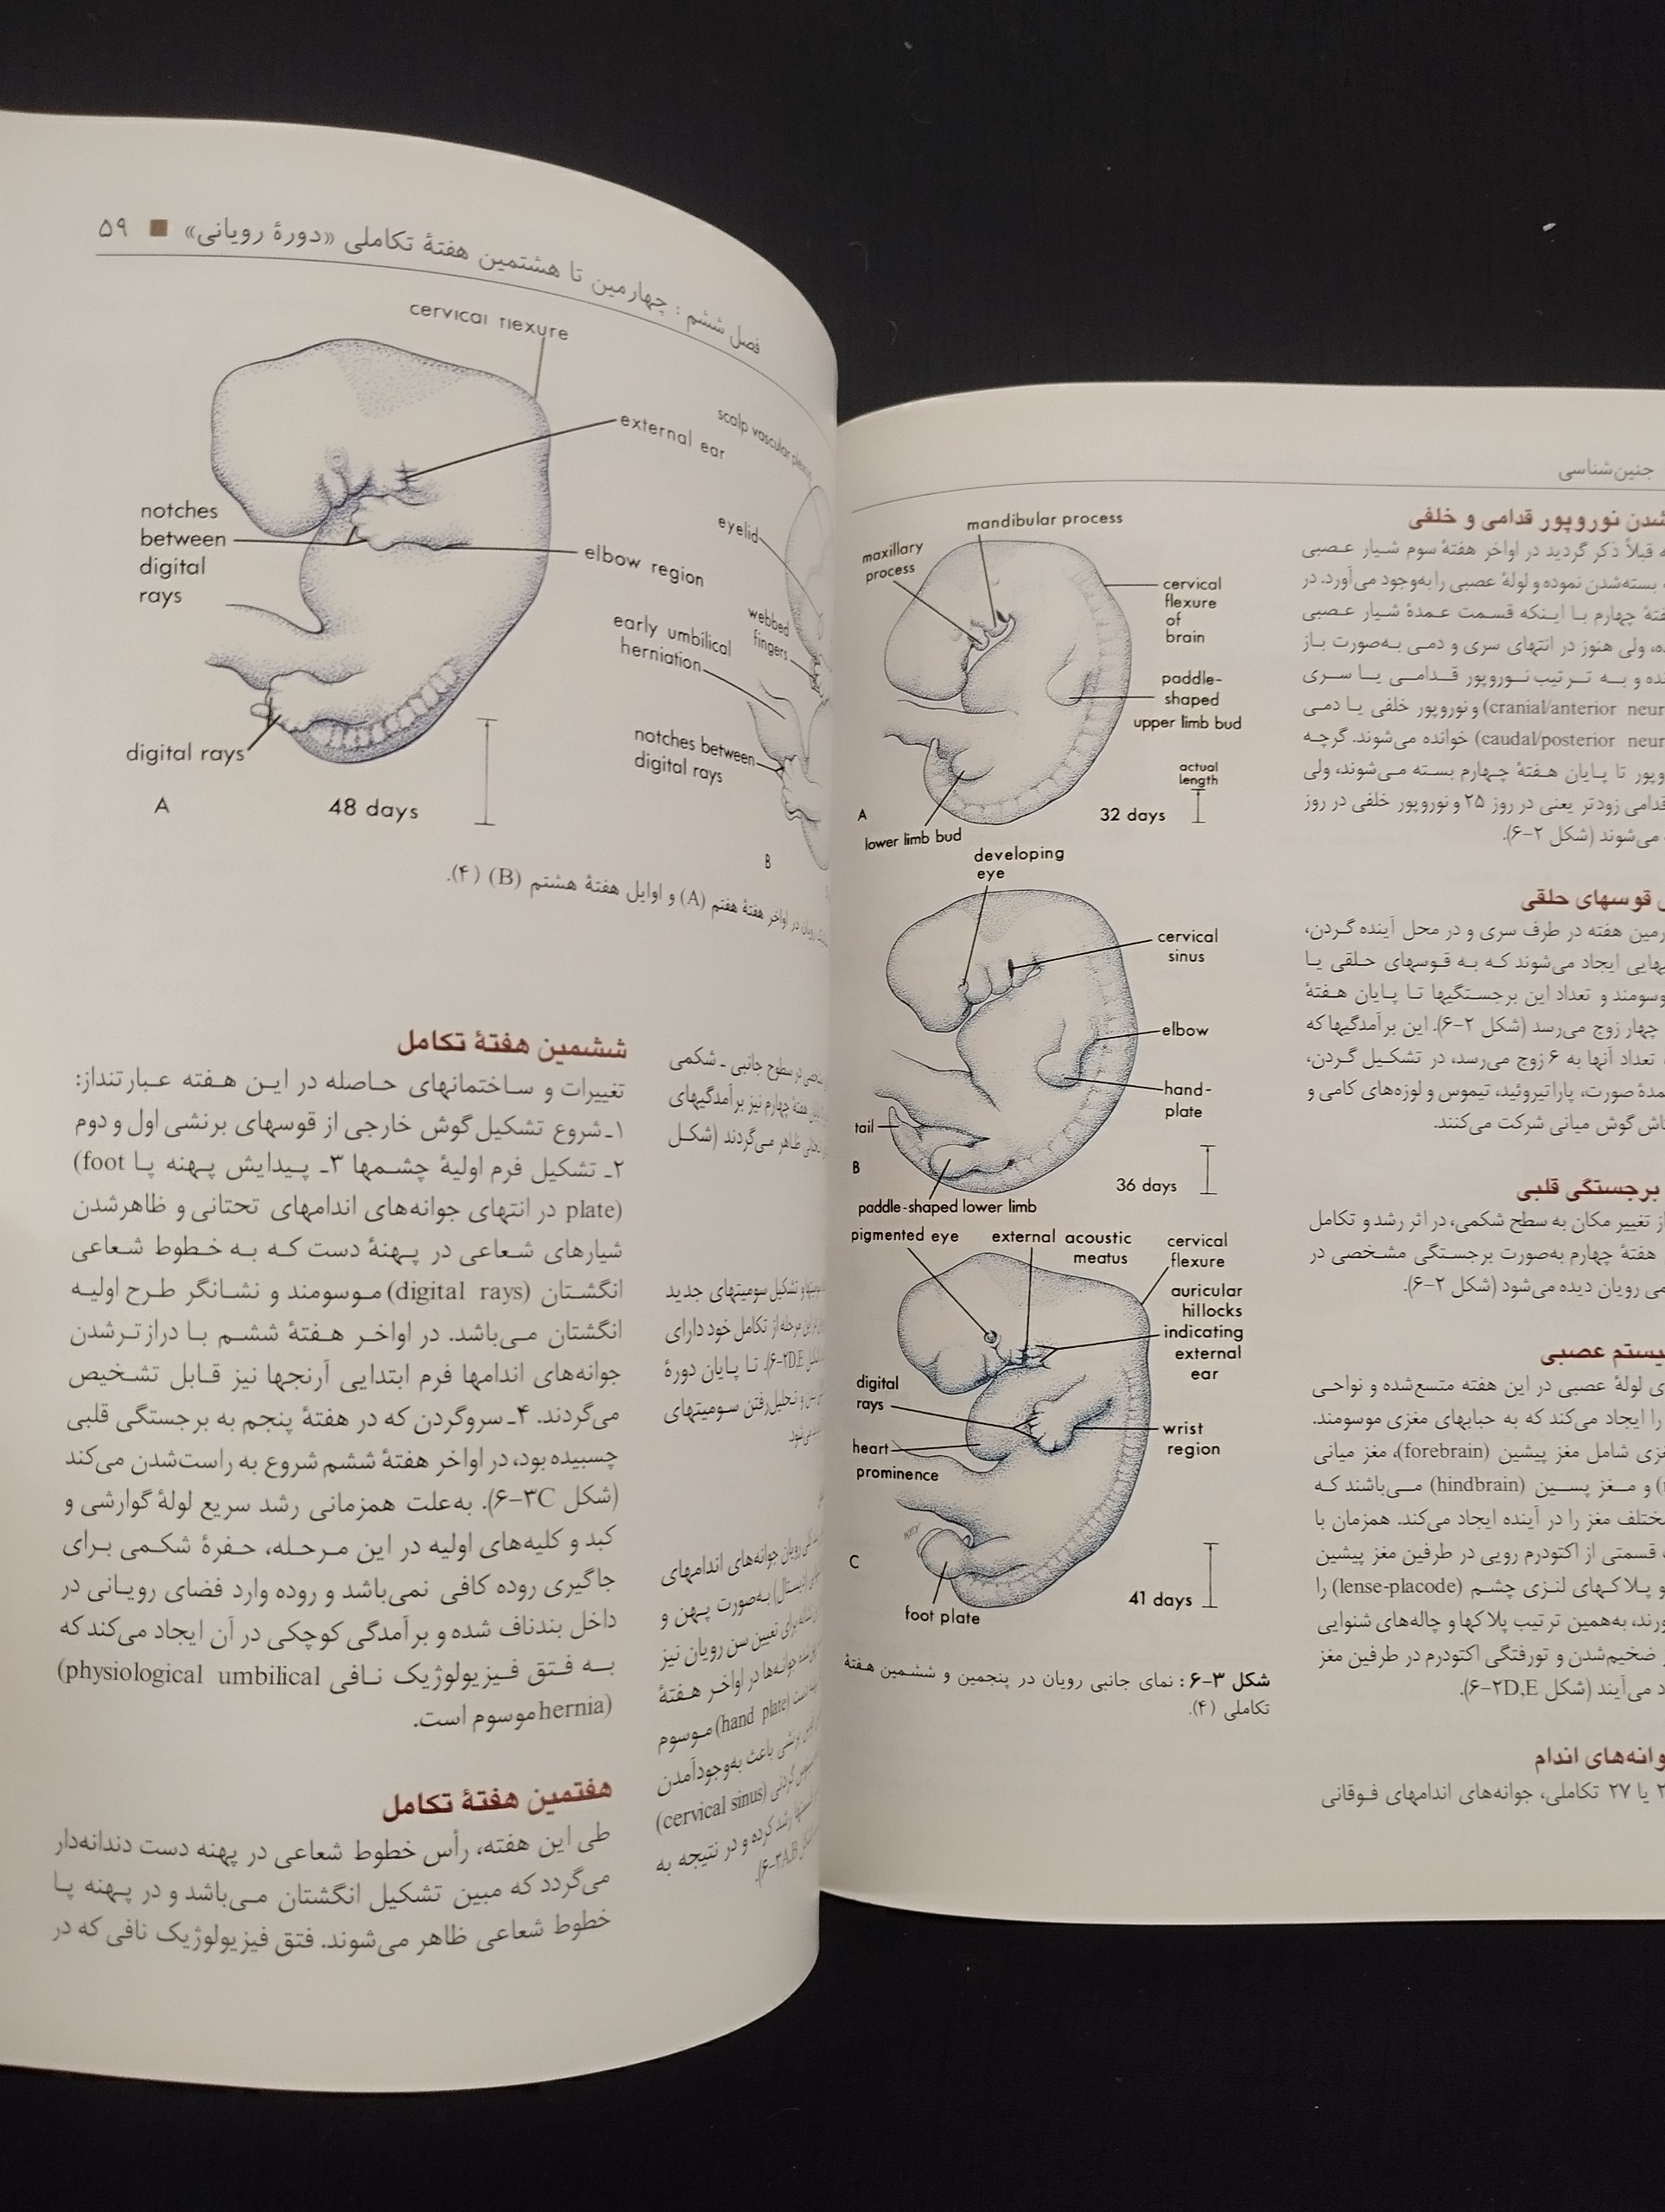 فصل ششم : چهارمین تا هشتمین هفتهٔ تکاملی «دورهٔ رویانی» ■ ۵۹
cervical flexure
external ear
scalp vascular plexus
notches
between
digital
rays
elbow region
eyelid
early umbilical
herniation
webbed
fingers
notches between
digital rays
digital rays
A
48 days
B
در اواخر هفتهٔ هفتم (A) و اوایل هفتهٔ هشتم (B) (۴).
در سطوح جانبی ـ شکمی
هفتهٔ چهارم نیز برآمدگیهای
ظاهر می‌گردند (شکل
و تشکیل سومیتهای جدید
مرحله از تکامل خود دارای
۶-۲D,E). تا پایان دورهٔ
و تحلیل‌رفتن سومیتهای
رویان جوانه‌های اندامهای
به‌صورت پهن و
برای تعیین سن رویان نیز
جوانه‌ها در اواخر هفتهٔ
(hand plate) موسوم
باعث به‌وجودآمدن
(cervical sinus)
رشد کرده و در نتیجه به
۶-۳A,B).
ششمین هفتهٔ تکامل
تغییرات و ساختمانهای حاصله در این هفته عبارتنداز:
۱ـ شروع تشکیل گوش خارجی از قوسهای برنشی اول و دوم
۲ـ تشکیل فرم اولیهٔ چشمها ۳ـ پیدایش پهنه پا (foot
plate) در انتهای جوانه‌های اندامهای تحتانی و ظاهرشدن
شیارهای شعاعی در پهنهٔ دست که به خطوط شعاعی
انگشتان (digital rays) موسومند و نشانگر طرح اولیه
انگشتان می‌باشد. در اواخر هفتهٔ ششم با درازترشدن
جوانه‌های اندامها فرم ابتدایی آرنجها نیز قابل تشخیص
می‌گردند. ۴ـ سروگردن که در هفتهٔ پنجم به برجستگی قلبی
چسبیده بود، در اواخر هفتهٔ ششم شروع به راست‌شدن می‌کند
(شکل ۶-۳C). به‌علت همزمانی رشد سریع لولهٔ گوارشی و
کبد و کلیه‌های اولیه در این مرحله، حفرهٔ شکمی برای
جاگیری روده کافی نمی‌باشد و روده وارد فضای رویانی در
داخل بندناف شده و برآمدگی کوچکی در آن ایجاد می‌کند که
به فتق فیزیولوژیک نافی (physiological umbilical
hernia) موسوم است.
هفتمین هفتهٔ تکامل
طی این هفته، رأس خطوط شعاعی در پهنه دست دندانه‌دار
می‌گردد که مبین تشکیل انگشتان می‌باشد و در پهنه پا
خطوط شعاعی ظاهر می‌شوند. فتق فیزیولوژیک نافی که در
جنین‌شناسی
شدن نوروپور قدامی و خلفی
قبلاً ذکر گردید در اواخر هفتهٔ سوم شیار عصبی
بسته‌شدن نموده و لولهٔ عصبی را به‌وجود می‌آورد. در
چهارم با اینکه قسمت عمدهٔ شیار عصبی
ولی هنوز در انتهای سری و دمی به‌صورت باز
و به ترتیب نوروپور قدامی یا سری
(cranial/anterior و نوروپور خلفی یا دمی
(caudal/posterior خوانده می‌شوند. گرچه
تا پایان هفتهٔ چهارم بسته می‌شوند، ولی
قدامی زودتر یعنی در روز ۲۵ و نوروپور خلفی در روز
می‌شوند (شکل ۶-۲).
قوسهای حلقی
هفته در طرف سری و در محل آینده گردن،
ایجاد می‌شوند که به قوسهای حلقی یا
و تعداد این برجستگیها تا پایان هفتهٔ
چهار زوج می‌رسد (شکل ۶-۲). این برآمدگیها که
تعداد آنها به ۶ زوج می‌رسد، در تشکیل گردن،
صورت، پاراتیروئید، تیموس و لوزه‌های کامی و
گوش میانی شرکت می‌کنند.
برجستگی قلبی
از تغییر مکان به سطح شکمی، در اثر رشد و تکامل
هفتهٔ چهارم به‌صورت برجستگی مشخصی در
رویان دیده می‌شود (شکل ۶-۲).
سیستم عصبی
لولهٔ عصبی در این هفته متسع‌شده و نواحی
را ایجاد می‌کند که به حبابهای مغزی موسومند.
شامل مغز پیشین (forebrain)، مغز میانی
و مغز پسین (hindbrain) می‌باشند که
مختلف مغز را در آینده ایجاد می‌کند. همزمان با
قسمتی از اکتودرم رویی در طرفین مغز پیشین
و پلاکهای لنزی چشم (lense-placode) را
به‌همین ترتیب پلاکها و چاله‌های شنوایی
ضخیم‌شدن و تورفتگی اکتودرم در طرفین مغز
می‌آیند (شکل ۶-۲D,E).
جوانه‌های اندام
یا ۲۷ تکاملی، جوانه‌های اندامهای فوقانی
mandibular process
maxillary
process
cervical
flexure
of
brain
paddle-
shaped
upper limb bud
actual
length
A
32 days
lower limb bud
developing
eye
cervical
sinus
elbow
hand-
plate
tail
B
36 days
paddle-shaped lower limb
pigmented eye
external acoustic
meatus
cervical
flexure
auricular
hillocks
indicating
external
ear
digital
rays
wrist
region
heart
prominence
C
41 days
foot plate
شکل ۳-۶ : نمای جانبی رویان در پنجمین و ششمین هفتهٔ
تکاملی (۴).